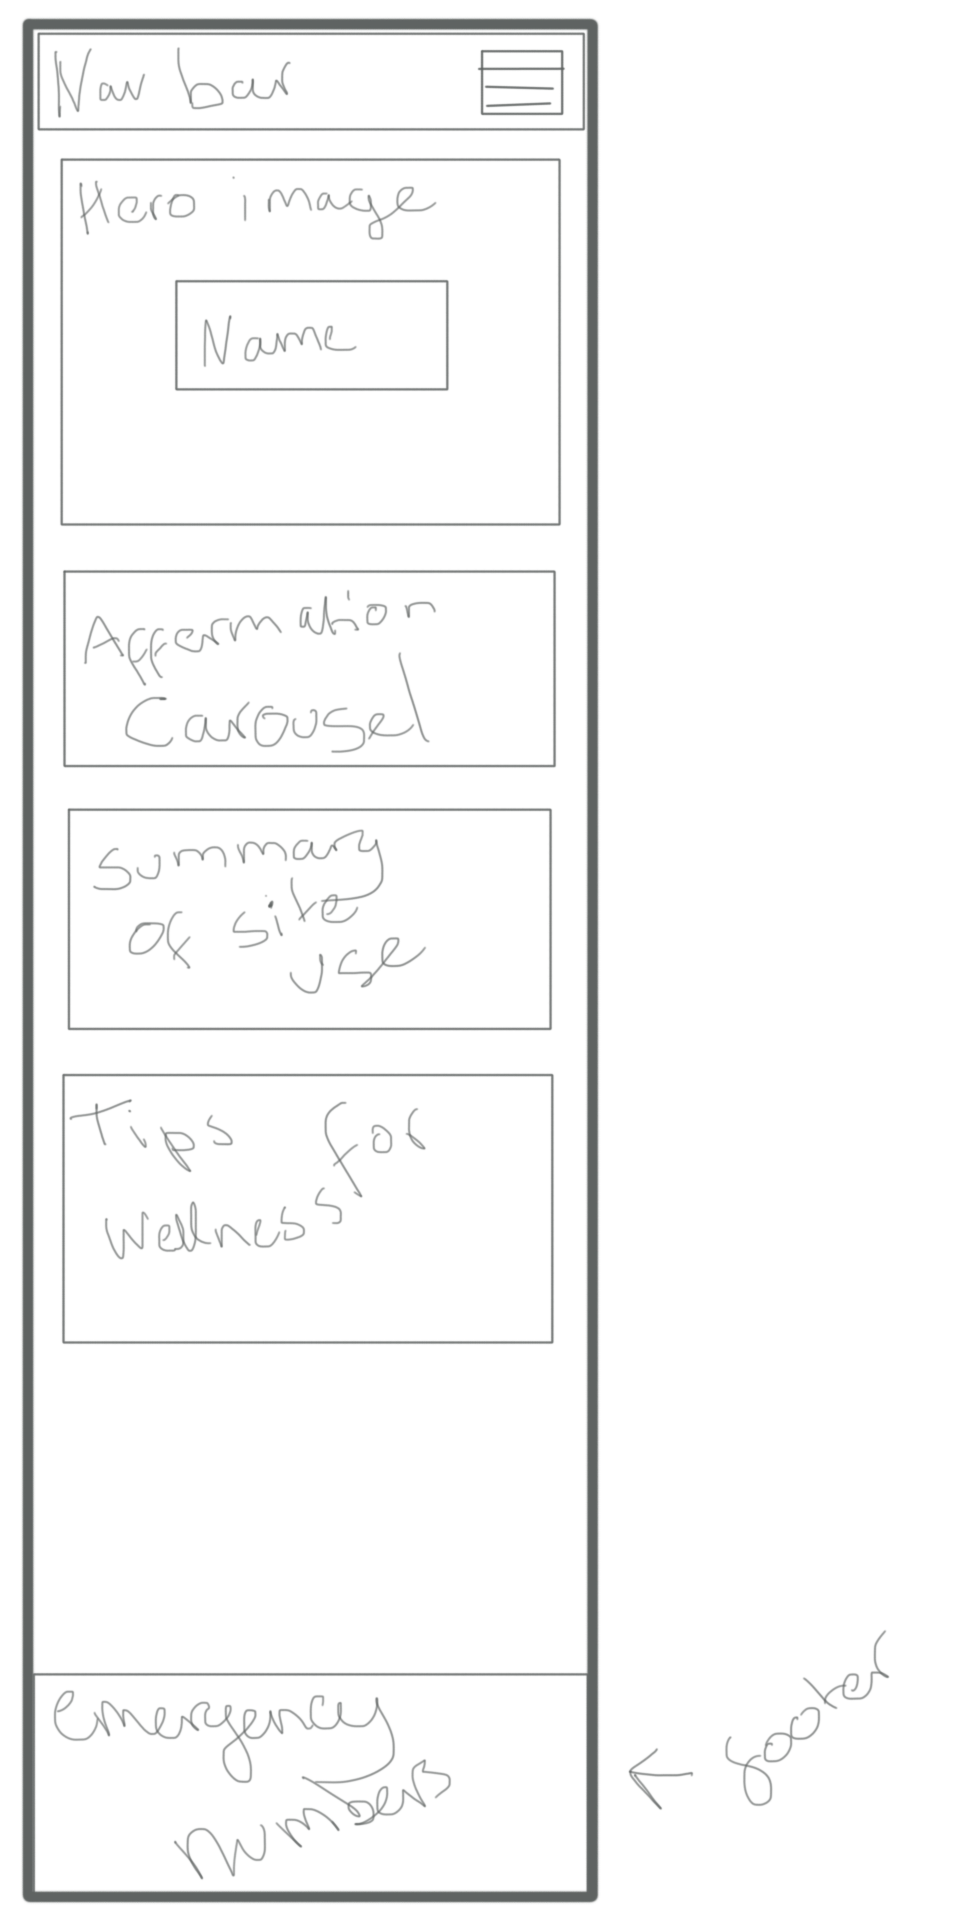 Nav bar
Hero image
Name
Affermation
Carousel
Summary
of site
use
Tips for
wellness
emergency
numbers
← footer